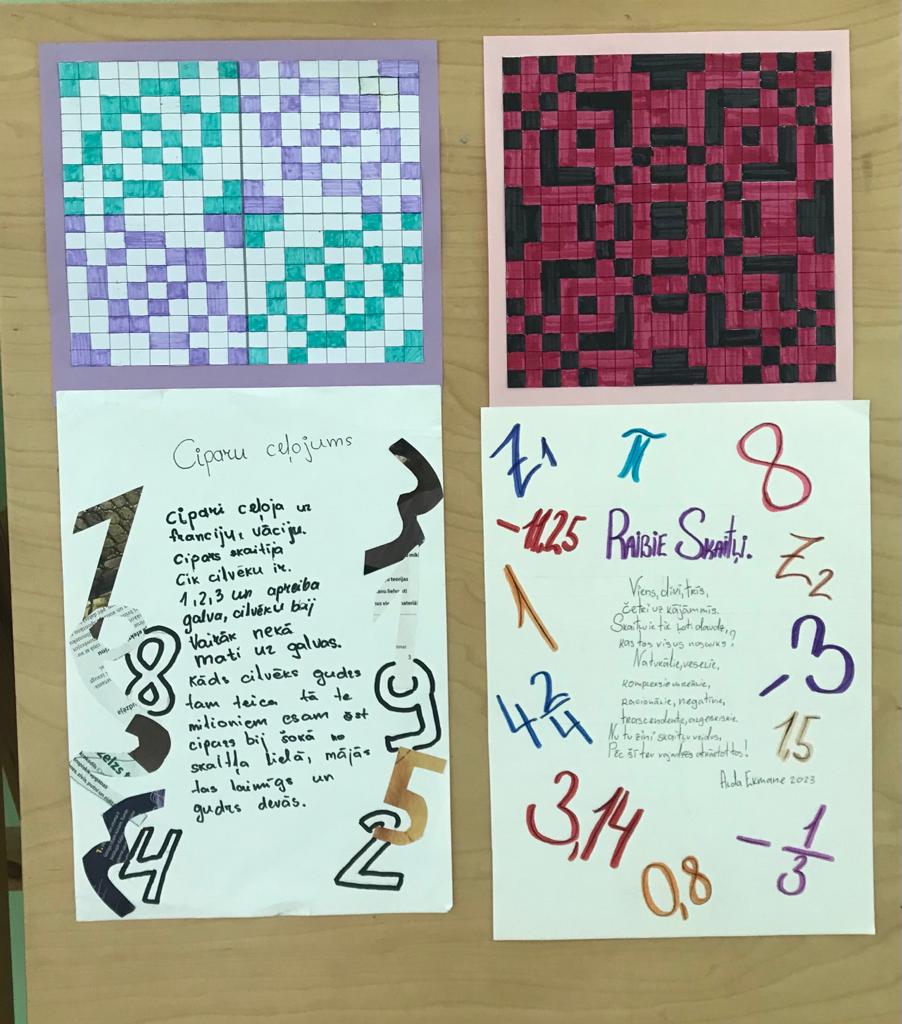 Ciparu ceļojums
Cipari ceļoja uz
franciju, vāciju.
Cipars skaitīja
Cik cilvēku ir.
1,2,3 un apreiba
galva, cilvēku bij
Vairāk nekā
mati uz galvas.
kāds cilvēks gudrs
tam teica, tā te
milioniem esam
cipars bij šokā no
skaitļa lielā, mājās
tas laimīgs un
gudrs devās.
7
8
4
3
9
5
2
π
8
-11,25
RAIBIE SKAITĻI.
Z2
1
-3
4 2/4
15
Viens, divi, trīs,
četri uz kājām mis.
Skaitļu ir tik ļoti daudz,
kas tos visus nosauks?
Naturālie, veselie,
kompleksie un reālie,
racionālie, negatīvie,
transcendentie, algebriskie.
Nu tu zini skaitļu veidus,
Pēc šī tev vajadzēs!
Aida Ekmane 2023
3,14
0,8
-1/3